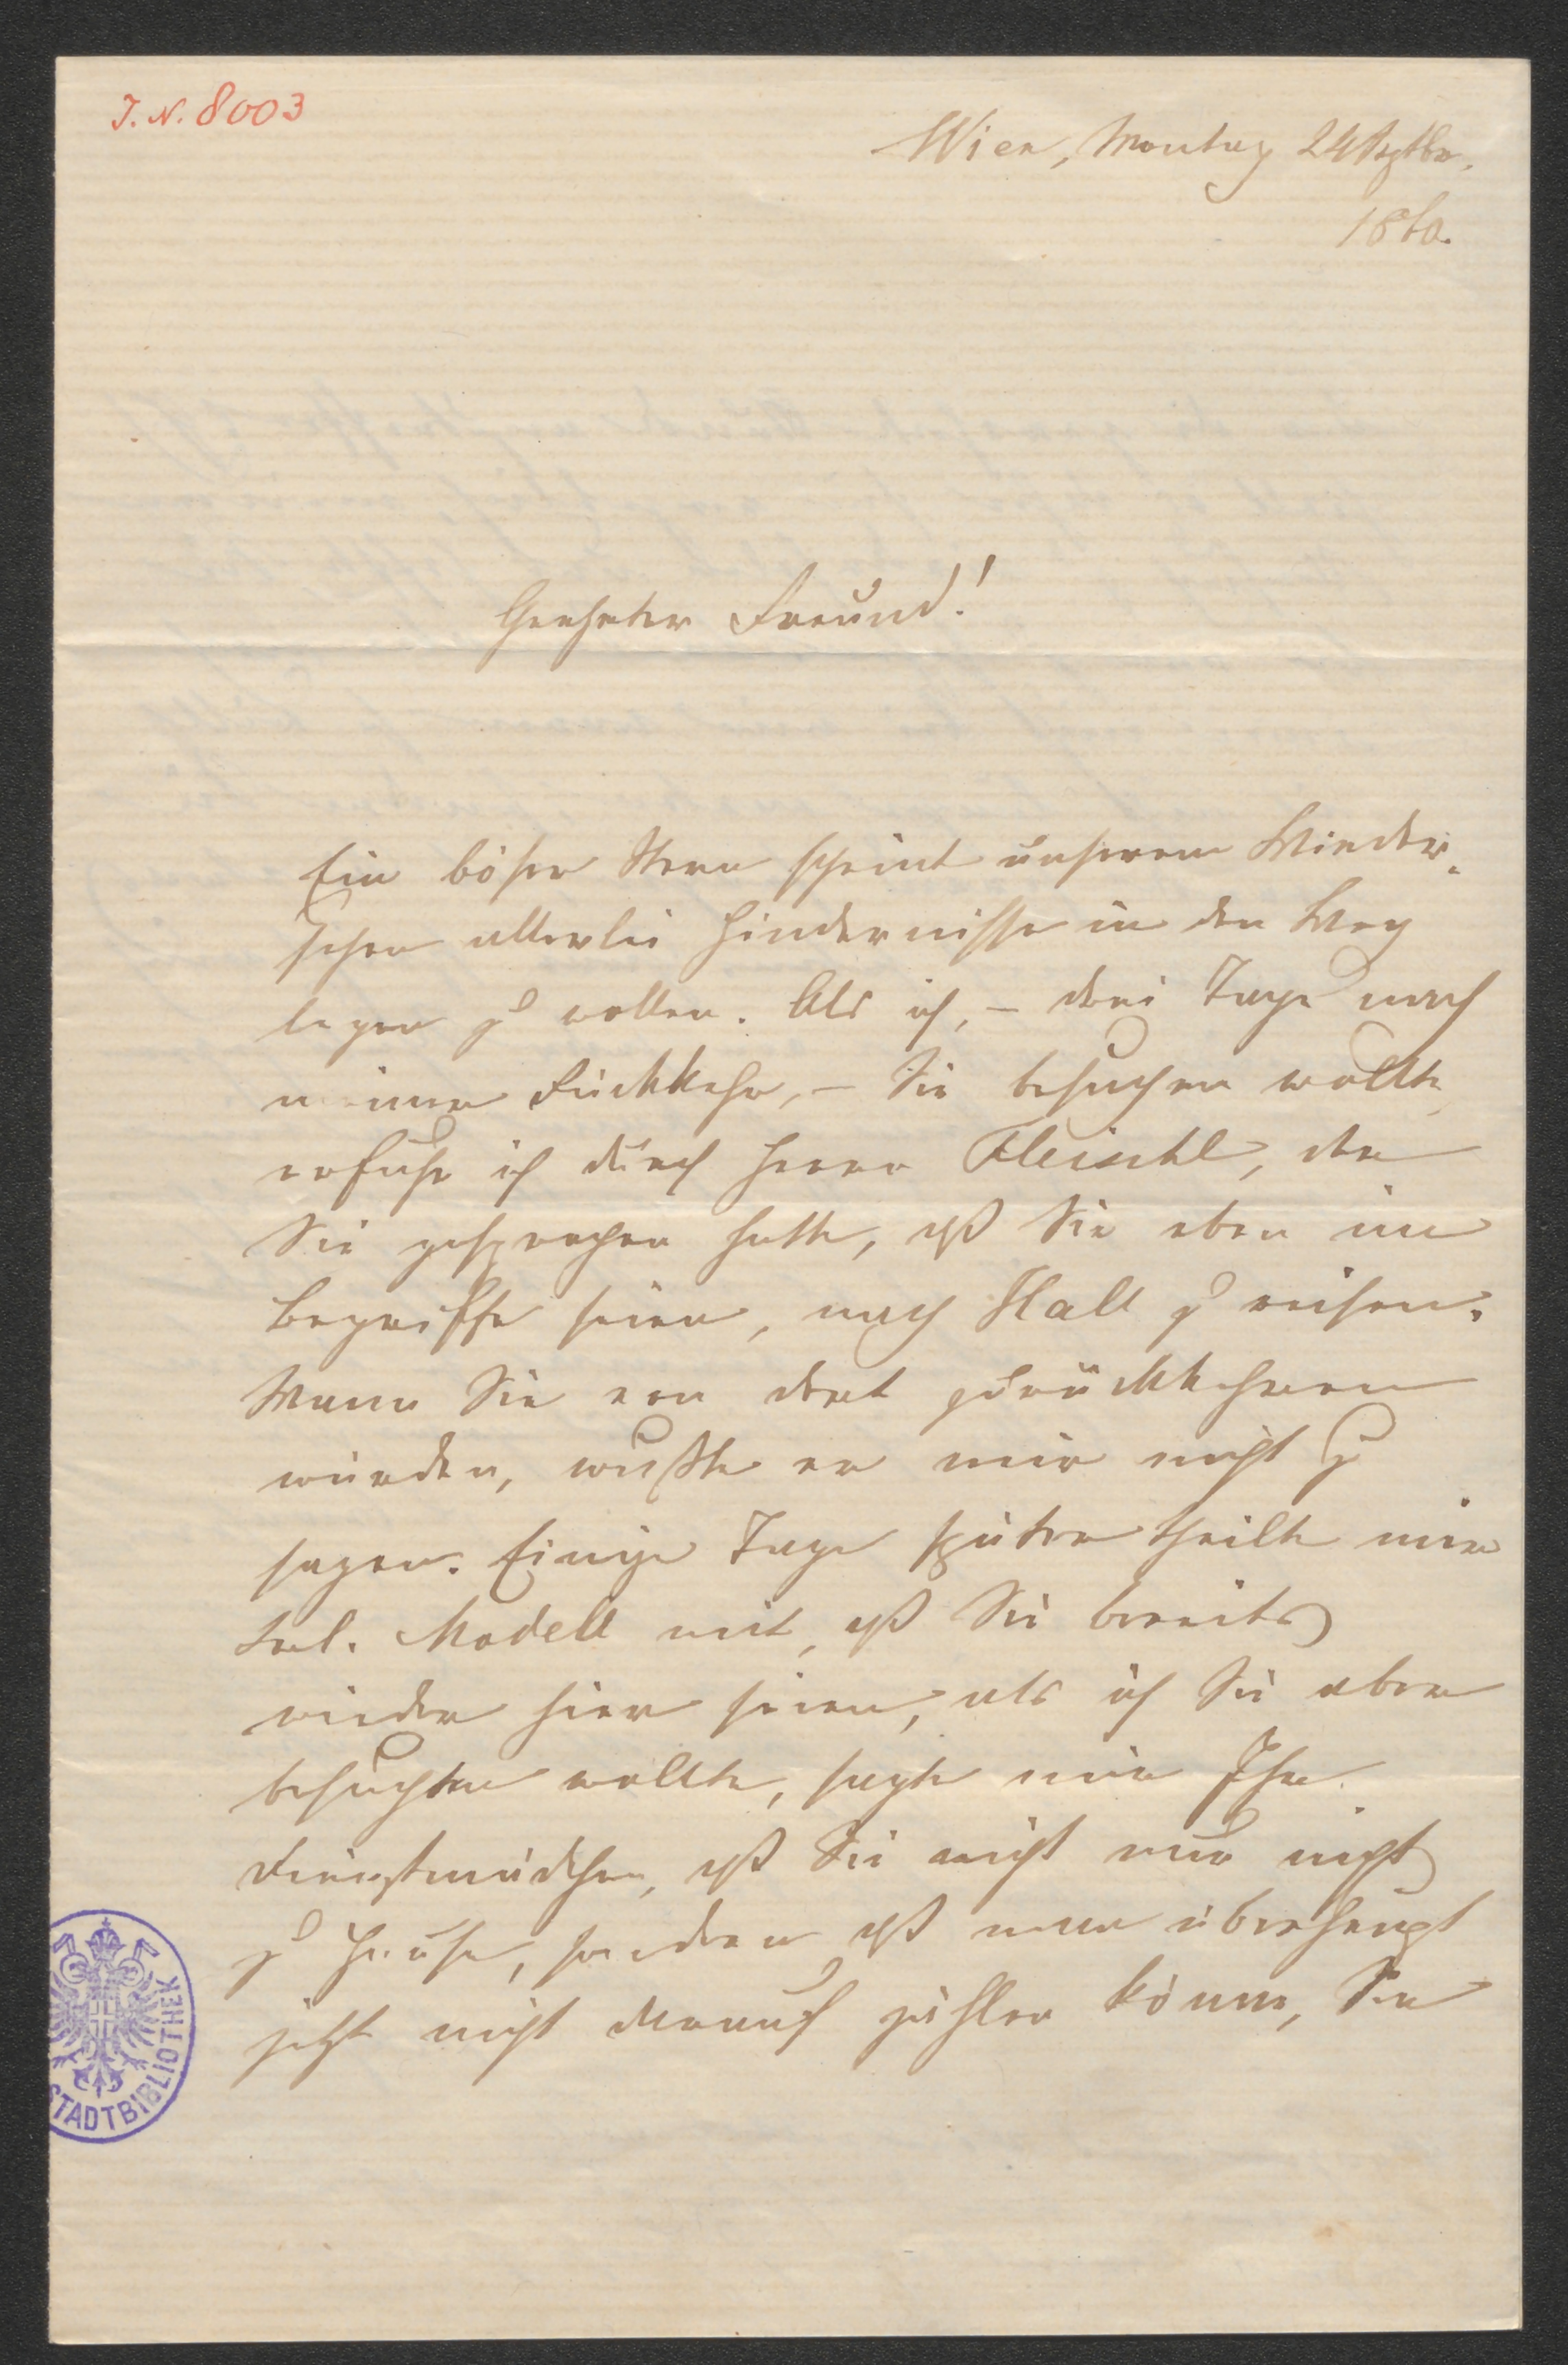 J. N. 8003
Wien, Montag 24 Septbr.
1860.
Geehrter Freund!
Ein böser Stern scheint unserem Wieder-
sehen allerlei Hindernisse in den Weg
legen zu wollen. Als ich, – drei Tage nach
meiner Rückkehr, – Sie besuchen wollte,
erfuhr ich durch Herrn Fleischl, der
Sie gesprochen hatte, daß Sie eben im
Begriffe seien, nach Hall zu reisen.
Wann Sie von dort zurückkehren
würden, wußte er mir nicht zu
sagen. Einige Tage später theilte mir
Frl. Modell mit, daß Sie bereits
wieder hier seien, als ich Sie aber
besuchen wollte, sagte mir Ihr
Dienstmädchen, daß Sie nicht nur nicht
zu Hause, sondern daß man überhaupt
jetzt nicht darauf zählen könne, Sie
STADTBIBLIOTHEK